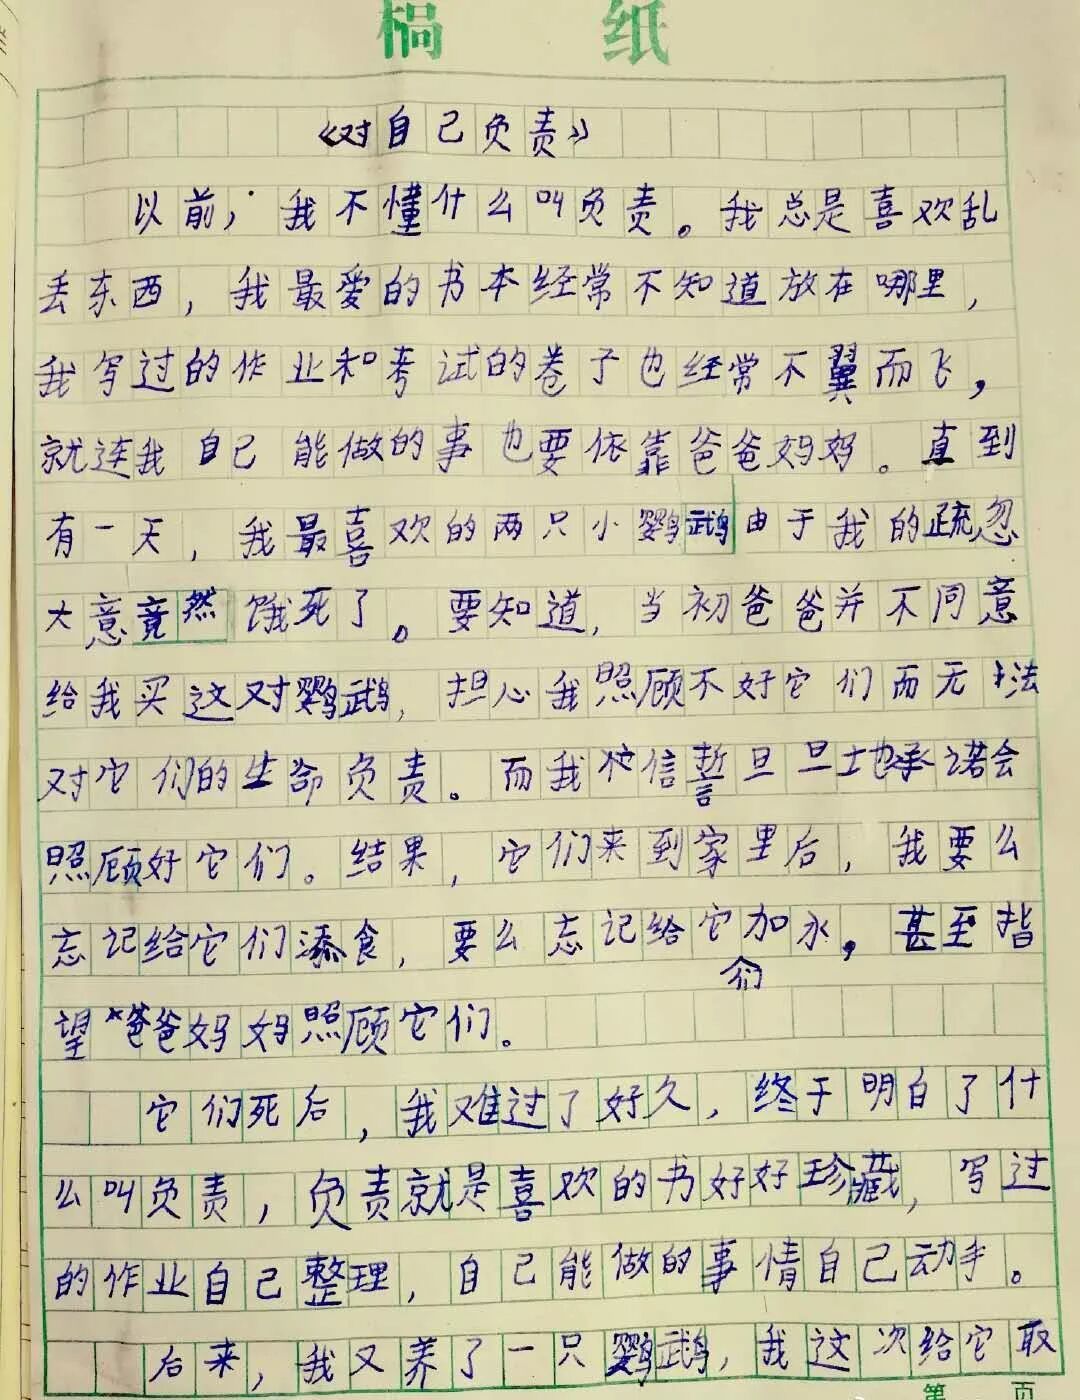 稿 纸
《对自己负责》
以前，我不懂什么叫负责。我总是喜欢乱
丢东西，我最爱的书本经常不知道放在哪里，
我写过的作业和考试的卷子也经常不翼而飞，
就连我自己能做的事也要依靠爸爸妈妈。直到
有一天，我最喜欢的两只小鹦鹉由于我的疏忽
大意竟然饿死了。要知道，当初爸爸并不同意
给我买这对鹦鹉，担心我照顾不好它们而无法
对它们的生命负责。而我信誓旦旦地承诺会
照顾好它们。结果，它们来到家里后，我要么
忘记给它们添食，要么忘记给它们加水。甚至指
望爸爸妈妈照顾它们。
它们死后，我难过了好久，终于明白了什
么叫负责，负责就是喜欢的书好好珍藏，写过
的作业自己整理，自己能做的事情自己动手。
后来，我又养了一只鹦鹉，我这次给它取
第 页